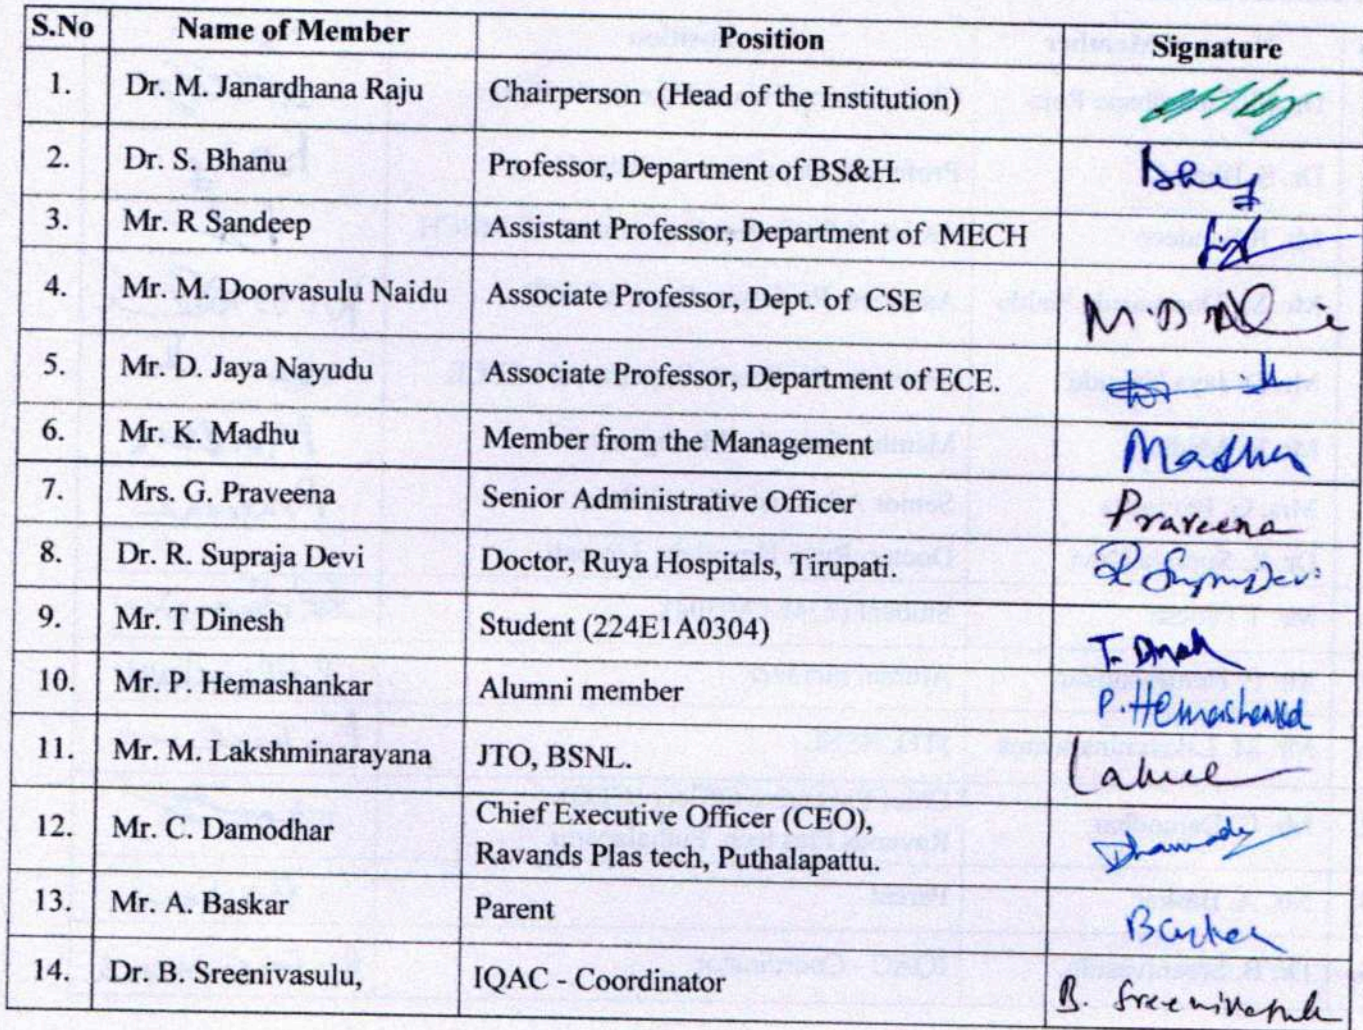 S.No Name of Member Position Signature
1. Dr. M. Janardhana Raju Chairperson (Head of the Institution)
2. Dr. S. Bhanu Professor, Department of BS&H.
3. Mr. R Sandeep Assistant Professor Department of MECH
4. Mr. M. Doorvasulu Naidu Associate Professor, Dept. of CSE
5. Mr. D. Jaya Nayudu Associate Professor, Department of ECE.
6. Mr. K. Madhu Member from the Management Madhu
7. Mrs. G. Praveena Senior Administrative Officer Praveena
8. Dr. R. Supraja Devi Doctor, Ruya Hospitals, Tirupati.
9. Mr. T Dinesh Student (224E1A0304)
10. Mr. P. Hemashankar Alumni member P. Hemashankar
11. Mr. M. Lakshminarayana JTO, BSNL.
12. Mr. C. Damodhar Chief Executive Officer (CEO),
Ravands Plas tech, Puthalapattu.
13. Mr. A. Baskar Parent
14. Dr. B. Sreenivasulu, IQAC - Coordinator B. Sreenivasulu